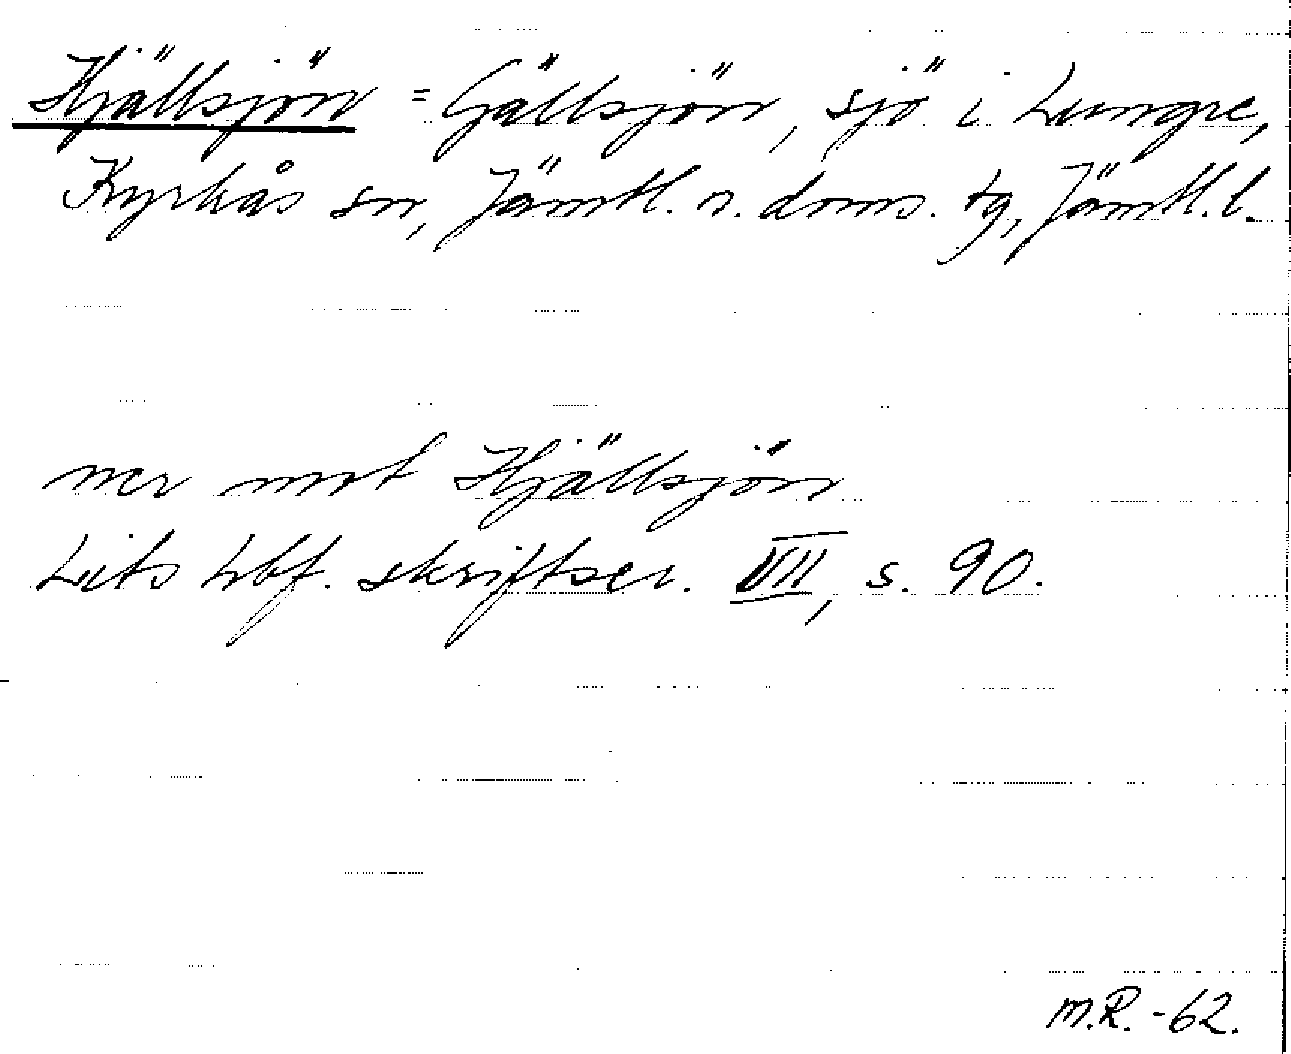 Hjällsjön = Gällsjön, sjö i Lungre,
Kyrkås sn, Jämtl. n. doms. tg, Jämtl. l.
ner mot Hjällsjön
Lits hbf. skriftser. VII, s. 90.
M.R. -62.